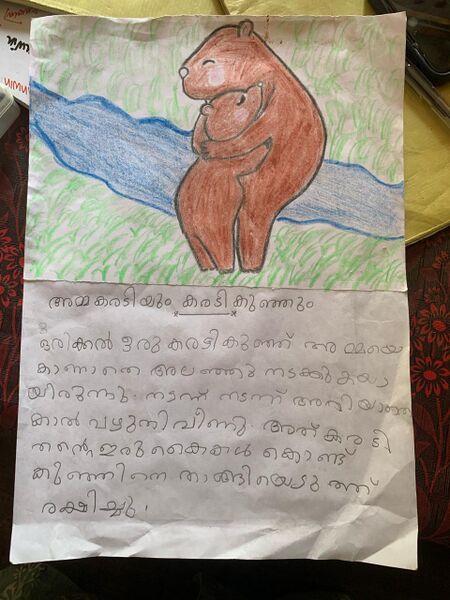 അമ്മകരടിയും കരടികുഞ്ഞും
ഒരിക്കൽ ഒരു കരടി കുഞ്ഞ് അമ്മയെ
കാണാതെ അലഞ്ഞു നടക്കുകയാ
യിരുന്നു. നടന്ന് നടന്ന് അറിയാതെ
കാൽ വഴുതി വീണു. അമ്മ കരടി
തന്റെ ഇരു കൈകൾ കൊണ്ട്
കുഞ്ഞിനെ താങ്ങിയെടുത്ത്
രക്ഷിച്ചു.